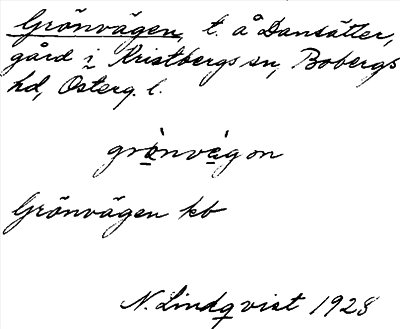 Grönvägen, t. å Dansätter,
gård i Kristbergs sn, Bobergs
hd, Österg. l.
grö̀nvä́gon
Grönvägen kb
N. Lindqvist 1928